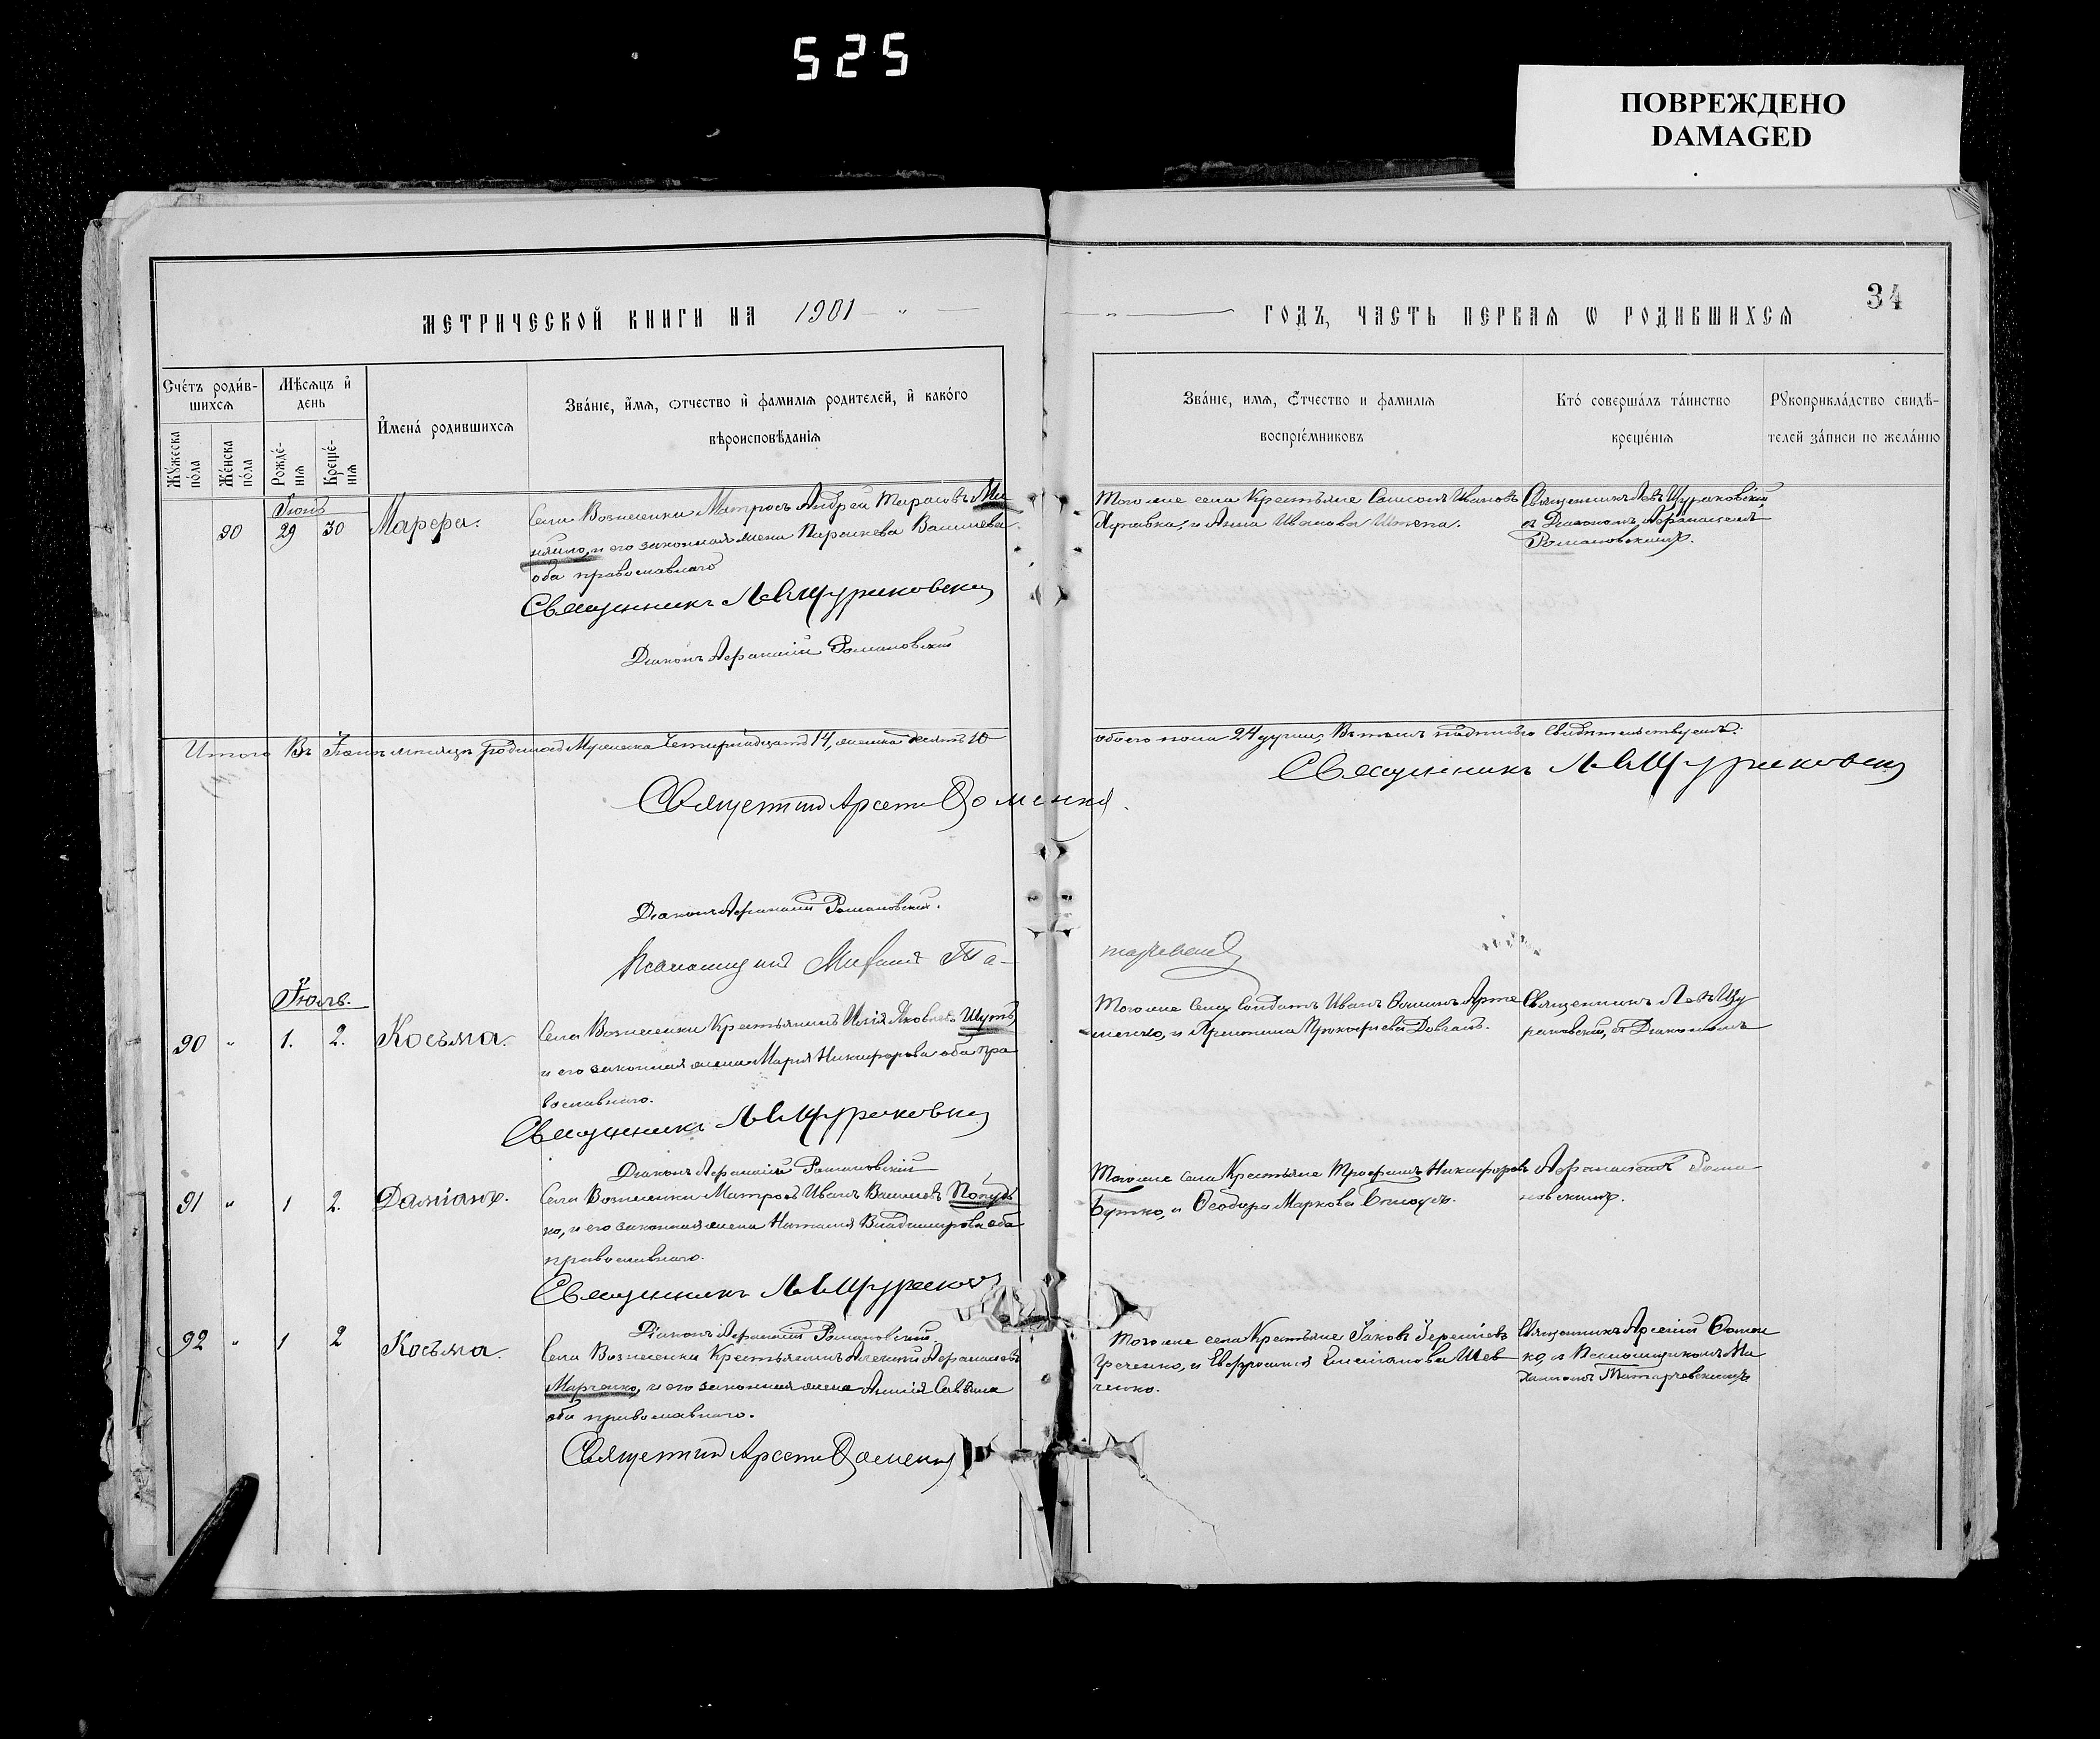 525
ПОВРЕЖДЕНО
DAMAGED
34
МЕТРИЧЕСКОЙ КНИГИ НА 1901
ГОДЪ, ЧАСТЬ ПЕРВАЯ Ѡ РОДИВШИХСЯ
Счéтъ роди́в-
шихся
Мѣсяцъ и҆
день
И҆мена́ родившихся
Зва́нїе, и҆́мя, ѻтчество и҆ фамилїя родителей, и҆ како́го
вѣроисповѣданїя
Мꙋ́жеска
по́ла
Же́нска
по́ла
Рожде́-
нїя
Креще́-
нїя
Зва́нїе, имя, ѻ҆́тчество и фамилїя
воспрїе́мниковъ
Кто́ соверша́лъ та́инство
креще́нїя
Рꙋкоприкла́дство свидѣ́-
телей за́писи по жела́нїю
Іюнь
90 29 30 Марѳа.
Села Вознесенки Матросъ Андрей Тарасовъ Ми
и его законная жена Параскева Васильева
оба православнаго
Священникъ Левъ Щураковскій
Діаконъ Аѳанасій Романовскій
Того же села Крестьяне Самсонъ Ивановъ
и Анна Иванова
Священникъ Левъ Щураковскій
съ Діакономъ Аѳанасіемъ
Романовскимъ.
Итого въ Іюнѣ мѣсяцѣ родилось Мужеска Четырнадцать 14, женска десять 10
обоего пола 24 души, Въ томъ подписью Свидѣтельствуемъ:
Священникъ Левъ Щураковскій
Священникъ Арсеній Ѳоменко
Діаконъ Аѳанасій Романовскій.
Псаломщикъ Михаилъ Та-
тарчевскій
Іюль.
90 " 1. 2. Косьма.
Села Вознесенки Крестьянинъ Илія Яковлевъ Шуть,
и его законная жена Марія Никифорова оба пра
вославнаго.
Священникъ Левъ Щураковскій
Діаконъ Аѳанасій Романовскій
Того же села Солдатъ Иванъ Ѳоминъ Арте
менко, и Прокофіева Довгаль.
Священникъ Левъ Щу
раковскій, съ Діакономъ
91 " 1 2. Даміанъ.
Села Вознесенки Матросъ Иванъ Васильевъ
ко, и его законная жена Наталія Владимірова оба
православнаго.
Священникъ Левъ Щураков
Діаконъ Аѳанасій Романовскій.
Того же села Крестьяне Трофимъ Никифоровъ
Бутко, и Ѳеодора Маркова
Аѳанасіемъ Рома
новскимъ.
92 " 1 2 Косьма.
Села Вознесенки Крестьянинъ Алексій Аѳанасьевъ
Марченко, и его законная жена Саввина
оба православнаго.
Священникъ Арсеній Ѳоменко
Того же села Крестьяне Іаковъ
Греченко, и Евфросинія Емеліанова Шев
ченко.
Священникъ Арсеній Ѳомен
ко, съ Псаломщикомъ Ми
хаиломъ Татарчевскимъ